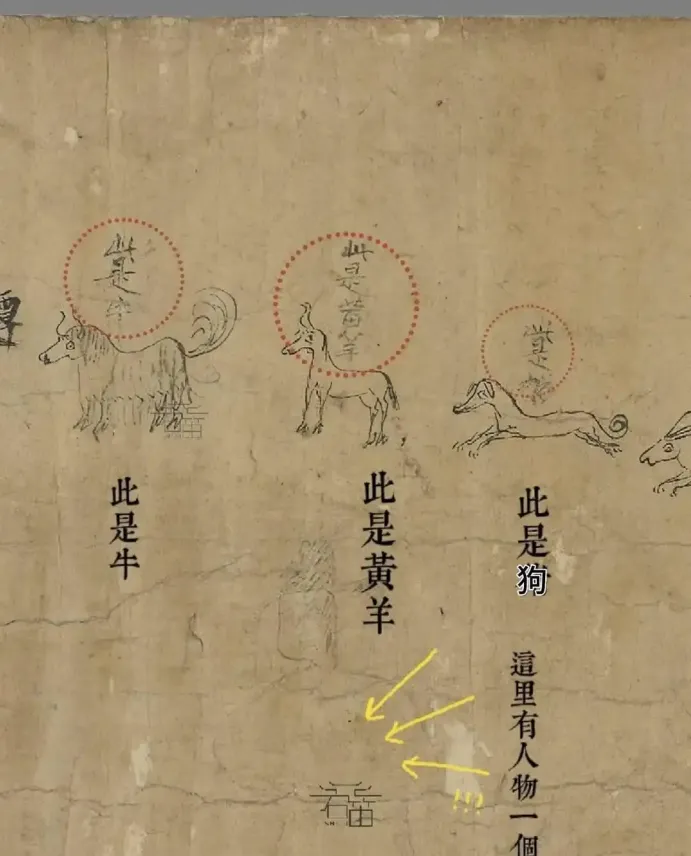 此是牛
此是黃羊
此是
此是牛
此是黃羊
此是狗
這里有人物一個
!!!